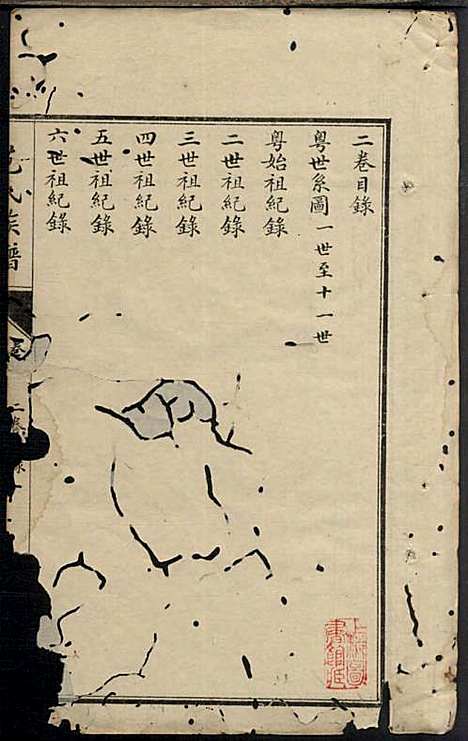 二卷目錄
粵世系圖 一世至十一世
粵始祖紀錄
二世祖紀錄
三世祖紀錄
四世祖紀錄
五世祖紀錄
六世祖紀錄
氏族譜
二卷